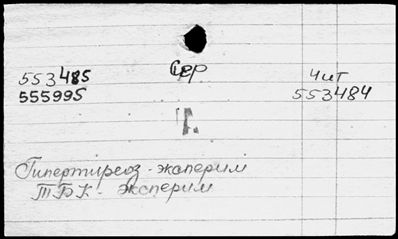 553485 Сер Чит
555995 553484
Т.
Гипертиреоз - эксперим
ТБК - эксперим